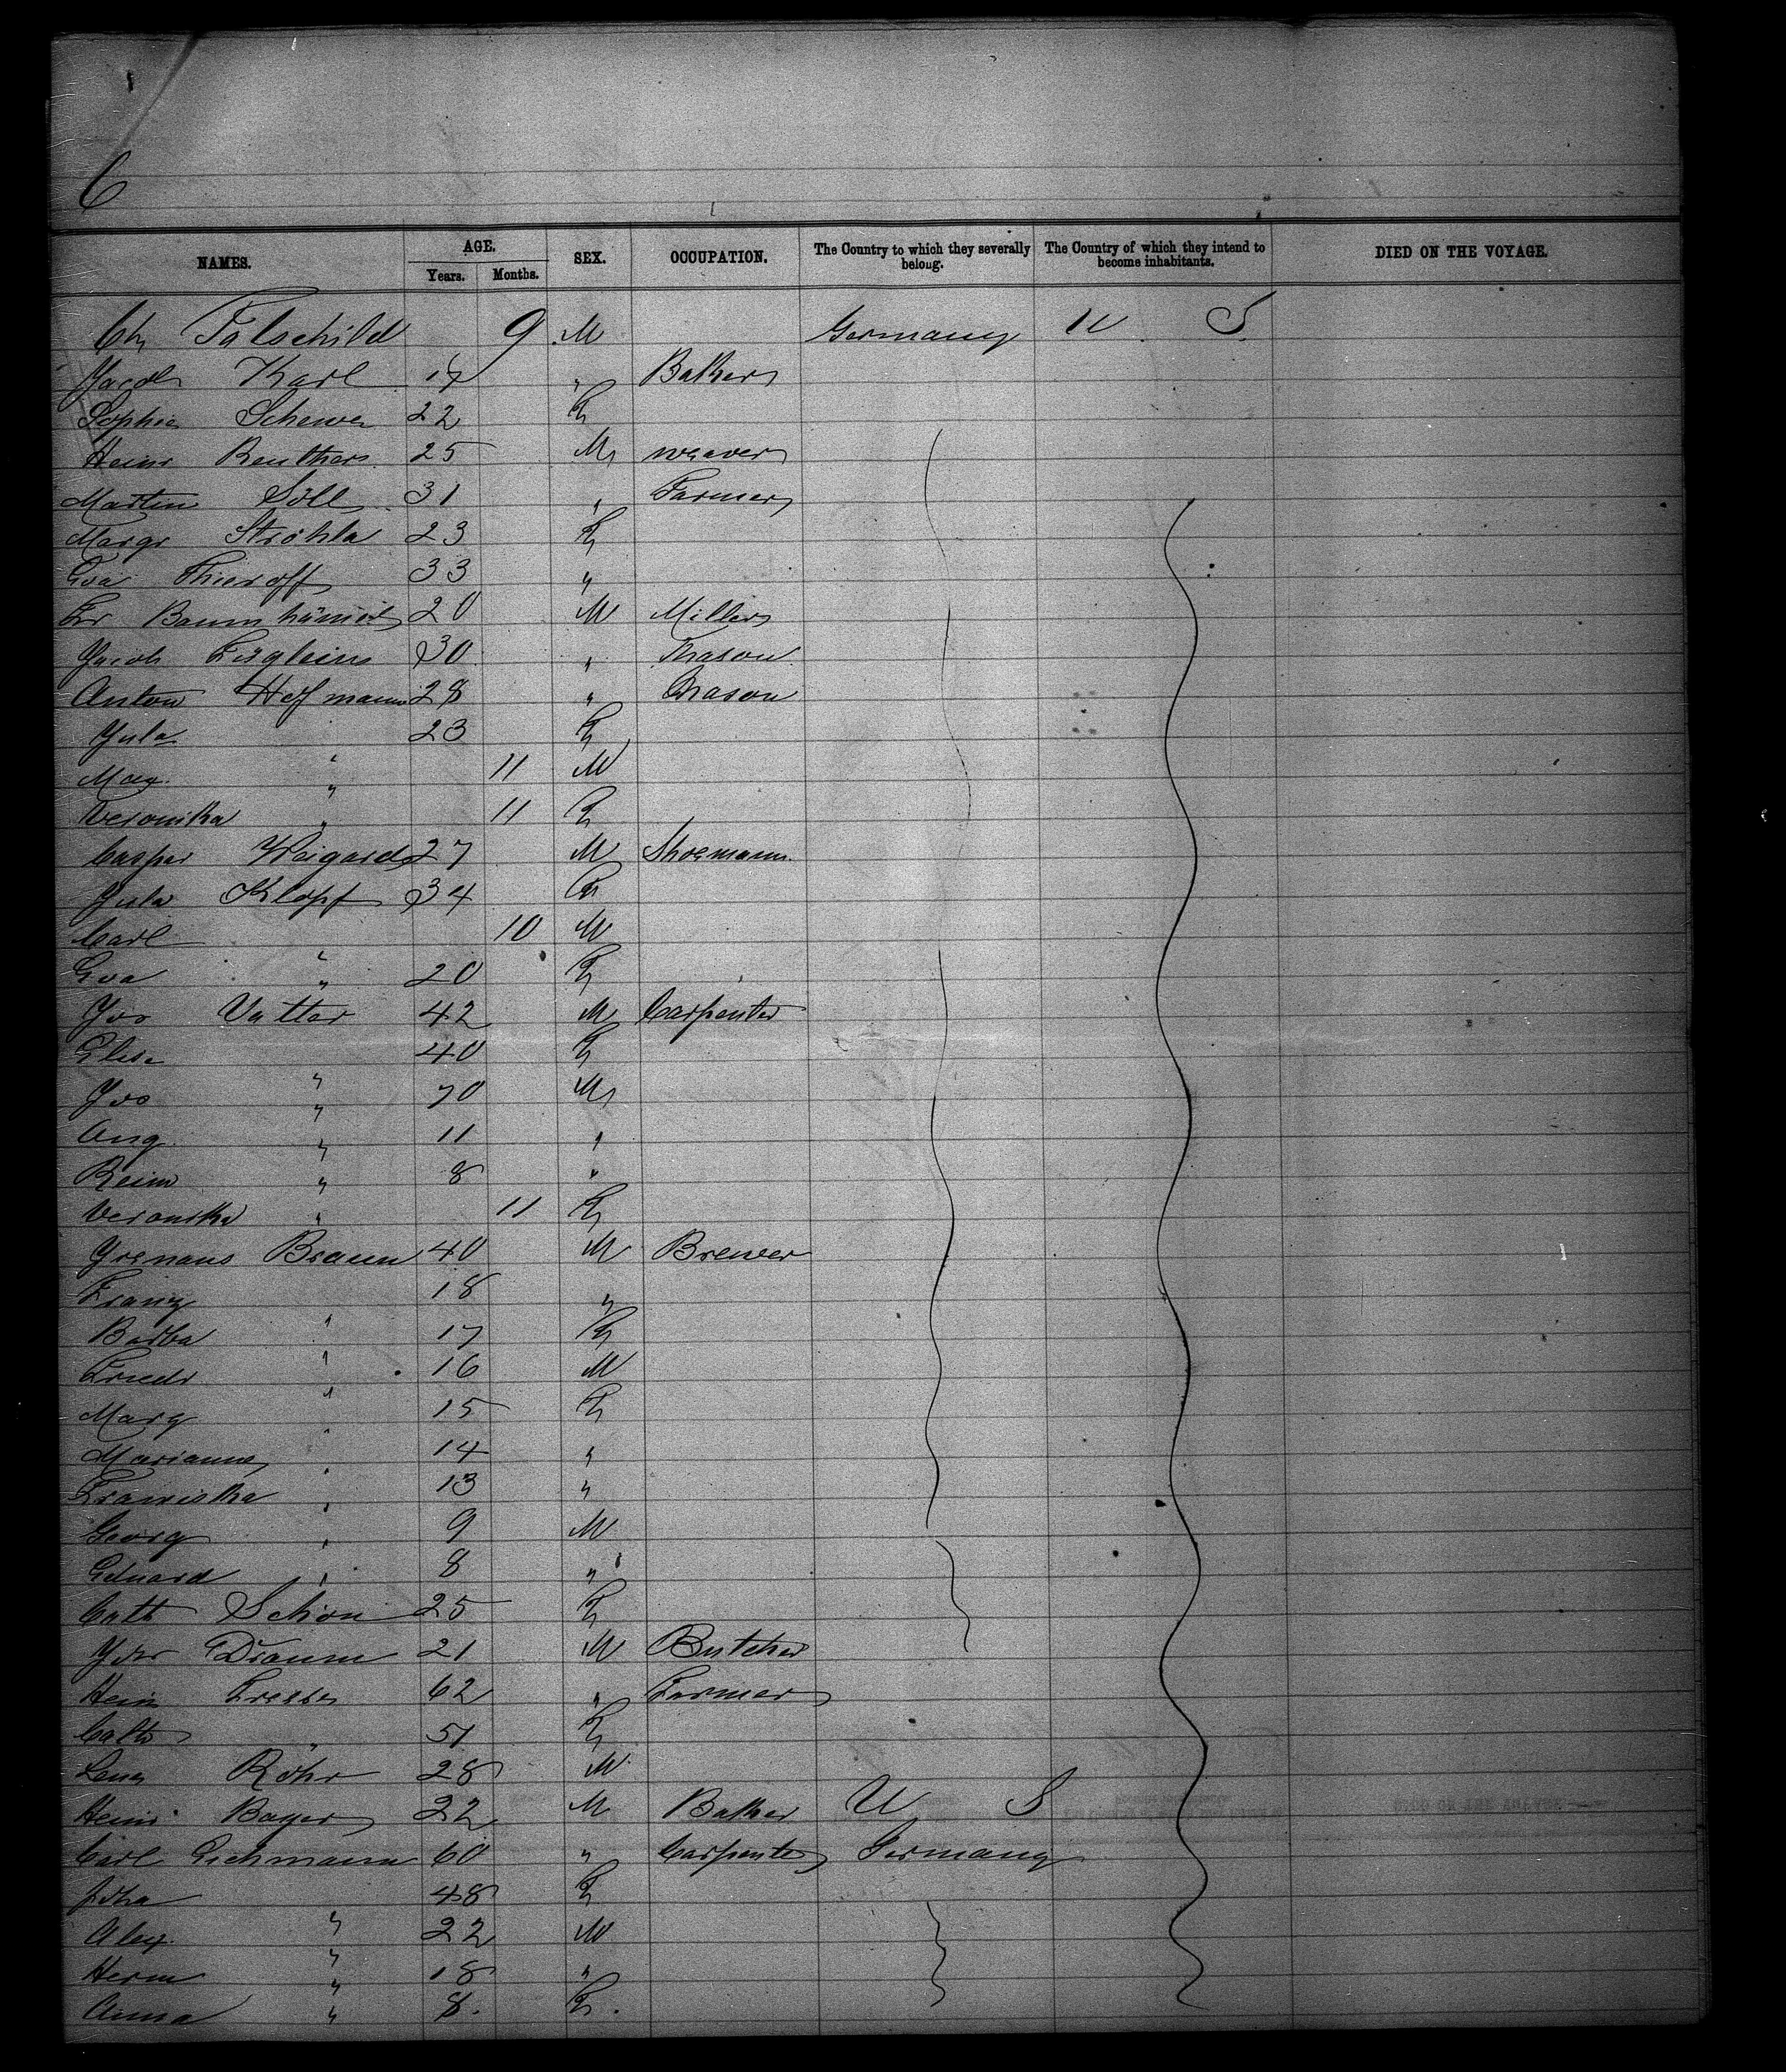 6
NAMES. AGE. SEX. OCCUPATION. The Country to which they severally belong. The Country of which they intend to become inhabitants. DIED ON THE VOYAGE.
Years. Months.
Ch Falschild 9 M Germany U S
Jacob Karl 19 " Baker
Sophie Schewe 22 F
Heinr Reuther 25 M weaver
Martin Söll 31 " Farmer
Margr Ströhla 23 F
Eva Thieroff 33 "
Fr 20 M Miller
Jacob 30 " Mason
Anton Hofmann 28 " Mason
Jula " 23 F
Max " 11 M
Veronika " 11 F
Casper Weigard 27 M Shoemann
Jula Klopf 34 F
Carl " 10 M
Eva " 20 F
Jos Vatter 42 M Carpenter
Elise " 40 F
Jos " 70 M
Aug " 11 "
Reim " 8 "
Veronika " 11 F
Braun 40 M Brewer
Franz " 18 "
Barba " 17 F
Friedr " 16 M
Marg " 15 F
Marianne " 14 "
Franziska " 13 "
Georg " 9 M
Eduard " 8 "
Cath Schön 25 F
Draum 21 M Butcher
Hein 62 " Farmer
Cath " 51 F
Lena Röhr 28 M
Heinr Bayer 22 M Baker U S
Carl Eichmann 60 " Carpenter Germany
Joha " 48 F
Alex " 22 M
Herm " 18 "
Anna " 8 F